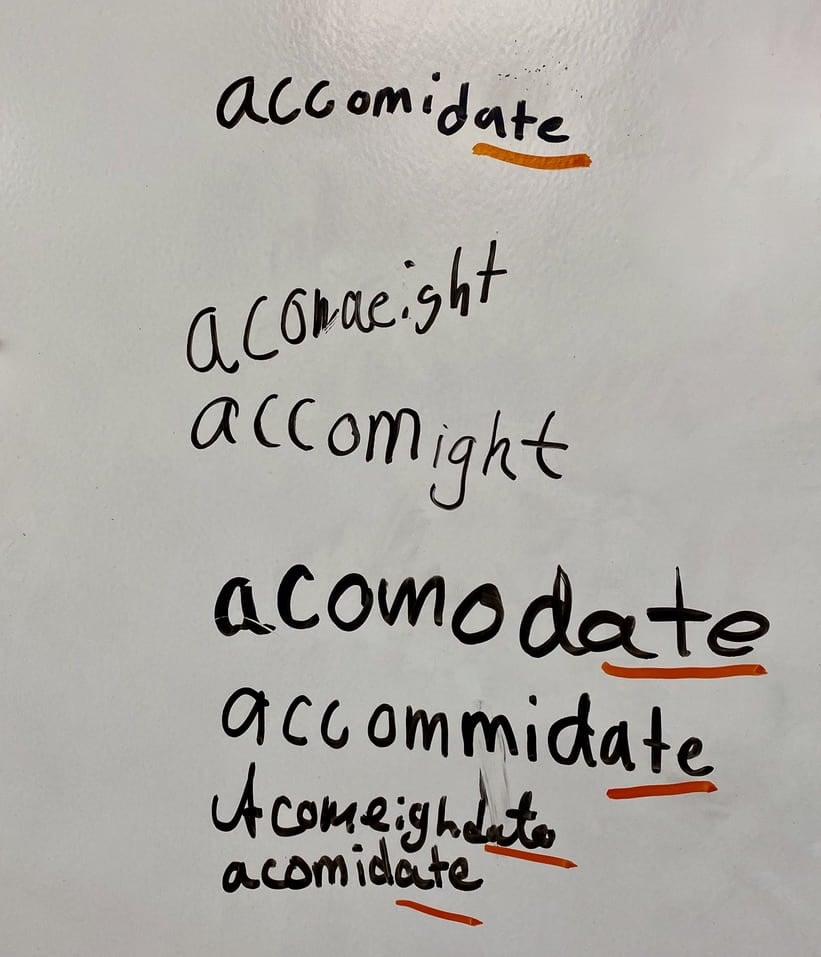 accomidate
aconaeight
accomight
acomodate
accommidate
Acomeighdate
acomidate